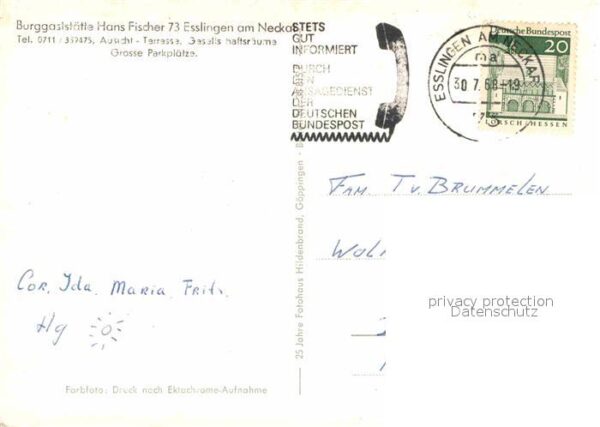 Burggaststätte Hans Fischer 73 Esslingen am Neckar
Tel. 0711 / 359475, Aussicht - Terrasse, Gesellschaftsräume
Grosse Parkplätze.
STETS
GUT
INFORMIERT
DURCH
DEN
ANSAGEDIENST
DER
DEUTSCHEN
BUNDESPOST
ESSLINGEN AM NECKAR
ma
30.7.68-19
73
Deutsche Bundespost
20
LORSCH/HESSEN
25 Jahre Fotohaus Hildenbrand, Göppingen - B
Fam Tv. Brummelen
Wol
Cor, Ida, Maria, Frits.
Hg
privacy protection
Datenschutz
Farbfoto: Druck nach Ektachrome-Aufnahme